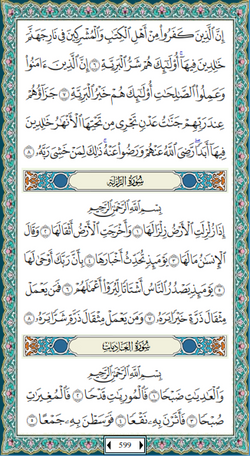 إِنَّ الَّذِينَ كَفَرُوا مِنْ أَهْلِ الْكِتَٰبِ وَالْمُشْرِكِينَ فِي نَارِ جَهَنَّمَ
خَٰلِدِينَ فِيهَا أُو۟لَٰٓئِكَ هُمْ شَرُّ الْبَرِيَّةِ ٦ إِنَّ الَّذِينَ ءَامَنُوا
وَعَمِلُوا الصَّٰلِحَٰتِ أُو۟لَٰٓئِكَ هُمْ خَيْرُ الْبَرِيَّةِ ٧ جَزَآؤُهُمْ
عِندَ رَبِّهِمْ جَنَّٰتُ عَدْنٍ تَجْرِي مِن تَحْتِهَا الْأَنْهَٰرُ خَٰلِدِينَ
فِيهَآ أَبَدًا رَّضِيَ اللَّهُ عَنْهُمْ وَرَضُوا عَنْهُ ذَٰلِكَ لِمَنْ خَشِيَ رَبَّهُ ٨
سُورَةُ الزَّلْزَلَةِ
بِسْمِ اللَّهِ الرَّحْمَٰنِ الرَّحِيمِ
إِذَا زُلْزِلَتِ الْأَرْضُ زِلْزَالَهَا ١ وَأَخْرَجَتِ الْأَرْضُ أَثْقَالَهَا ٢ وَقَالَ
الْإِنسَٰنُ مَا لَهَا ٣ يَوْمَئِذٍ تُحَدِّثُ أَخْبَارَهَا ٤ بِأَنَّ رَبَّكَ أَوْحَىٰ لَهَا
٥ يَوْمَئِذٍ يَصْدُرُ النَّاسُ أَشْتَاتًا لِّيُرَوْا أَعْمَٰلَهُمْ ٦ فَمَن يَعْمَلْ
مِثْقَالَ ذَرَّةٍ خَيْرًا يَرَهُ ٧ وَمَن يَعْمَلْ مِثْقَالَ ذَرَّةٍ شَرًّا يَرَهُ ٨
سُورَةُ الْعَادِيَاتِ
بِسْمِ اللَّهِ الرَّحْمَٰنِ الرَّحِيمِ
وَالْعَٰدِيَٰتِ ضَبْحًا ١ فَالْمُورِيَٰتِ قَدْحًا ٢ فَالْمُغِيرَٰتِ
صُبْحًا ٣ فَأَثَرْنَ بِهِ نَقْعًا ٤ فَوَسَطْنَ بِهِ جَمْعًا ٥
599